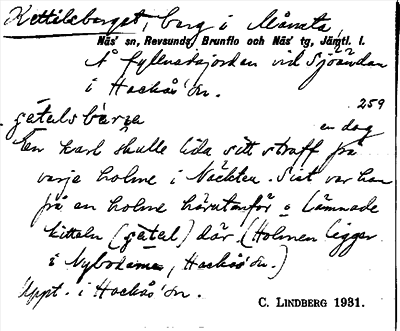 Kettilsberget, berg i Månsta,
Näs' sn, Revsunds, Brunflo och Näs' tg, Jämtl. l.
Å fyllnadsjorden vid Sjöändan
i Hackås' sn.
259
gətalsbärjə
en dag
En karl skulle lida sitt straff på
varje holme i Näckten. Sist var han
på en holme härutanför o lämnade
kitteln (gətal) där. (Holmen ligger
i Nybodarna, Hackås' sn.)
Uppt. i Hackås' sn.
C. LINDBERG 1931.